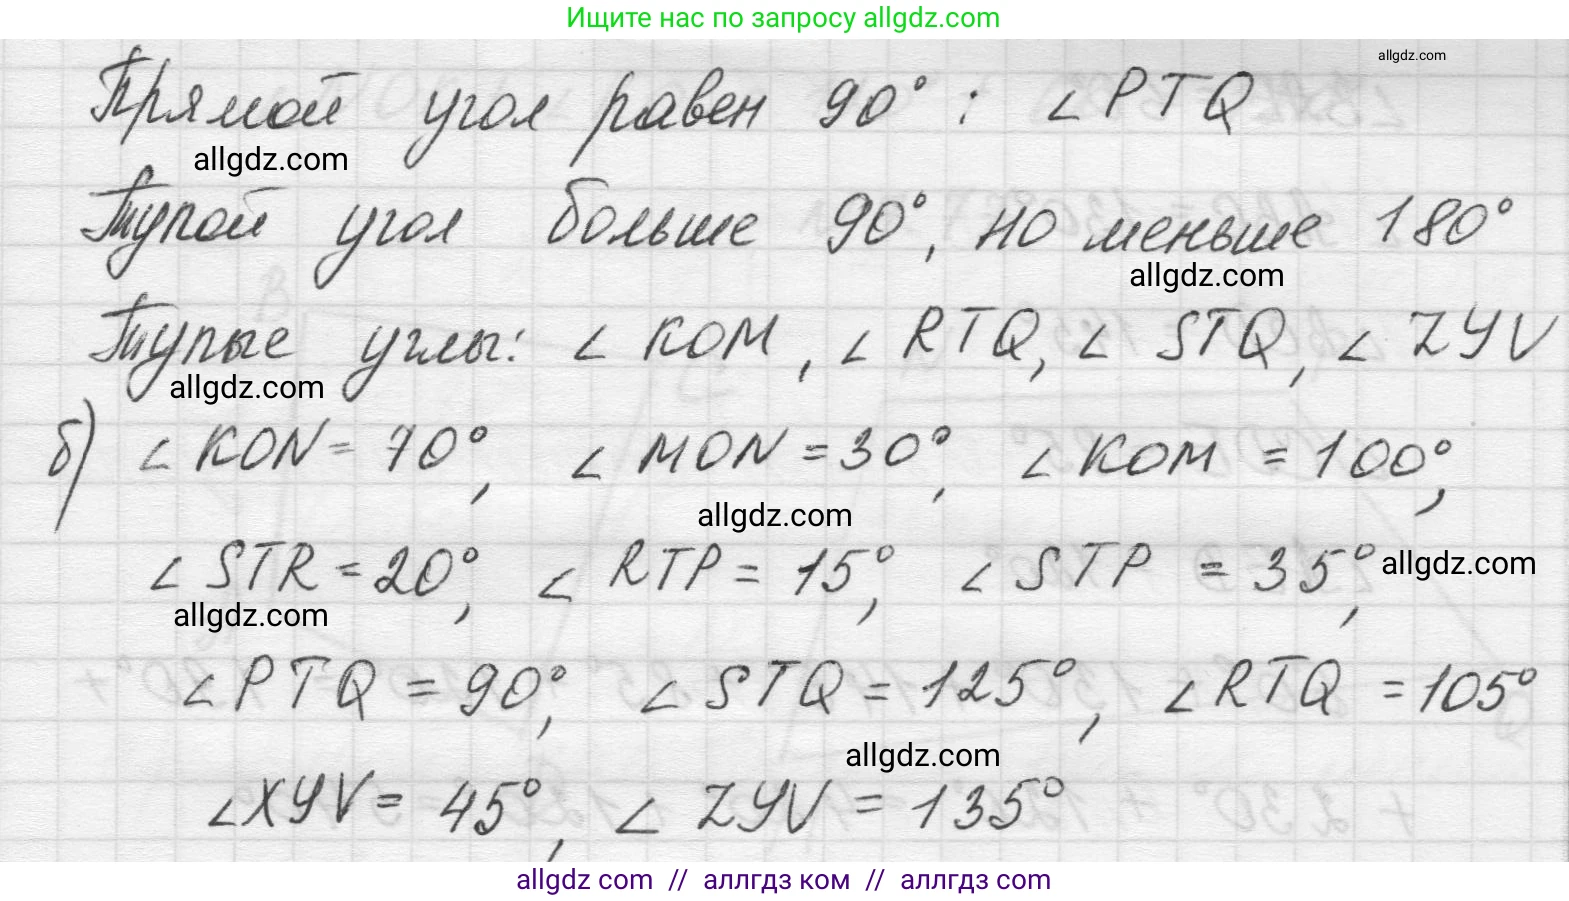 Ищите нас по запросу allgdz.com
allgdz.com
Прямой угол равен 90° : ∠PTQ
allgdz.com
Тупой угол больше 90°, но меньше 180°
allgdz.com
Тупые углы: ∠KOM, ∠RTQ, ∠STQ, ∠ZYV
allgdz.com
б) ∠KON = 70°, ∠MON = 30°, ∠KOM = 100°,
allgdz.com
∠STR = 20°, ∠RTP = 15°, ∠STP = 35°,
allgdz.com
allgdz.com
∠PTQ = 90°, ∠STQ = 125°, ∠RTQ = 105°
allgdz.com
∠XYV = 45°, ∠ZYV = 135°
allgdz com // аллгдз ком // allgdz com